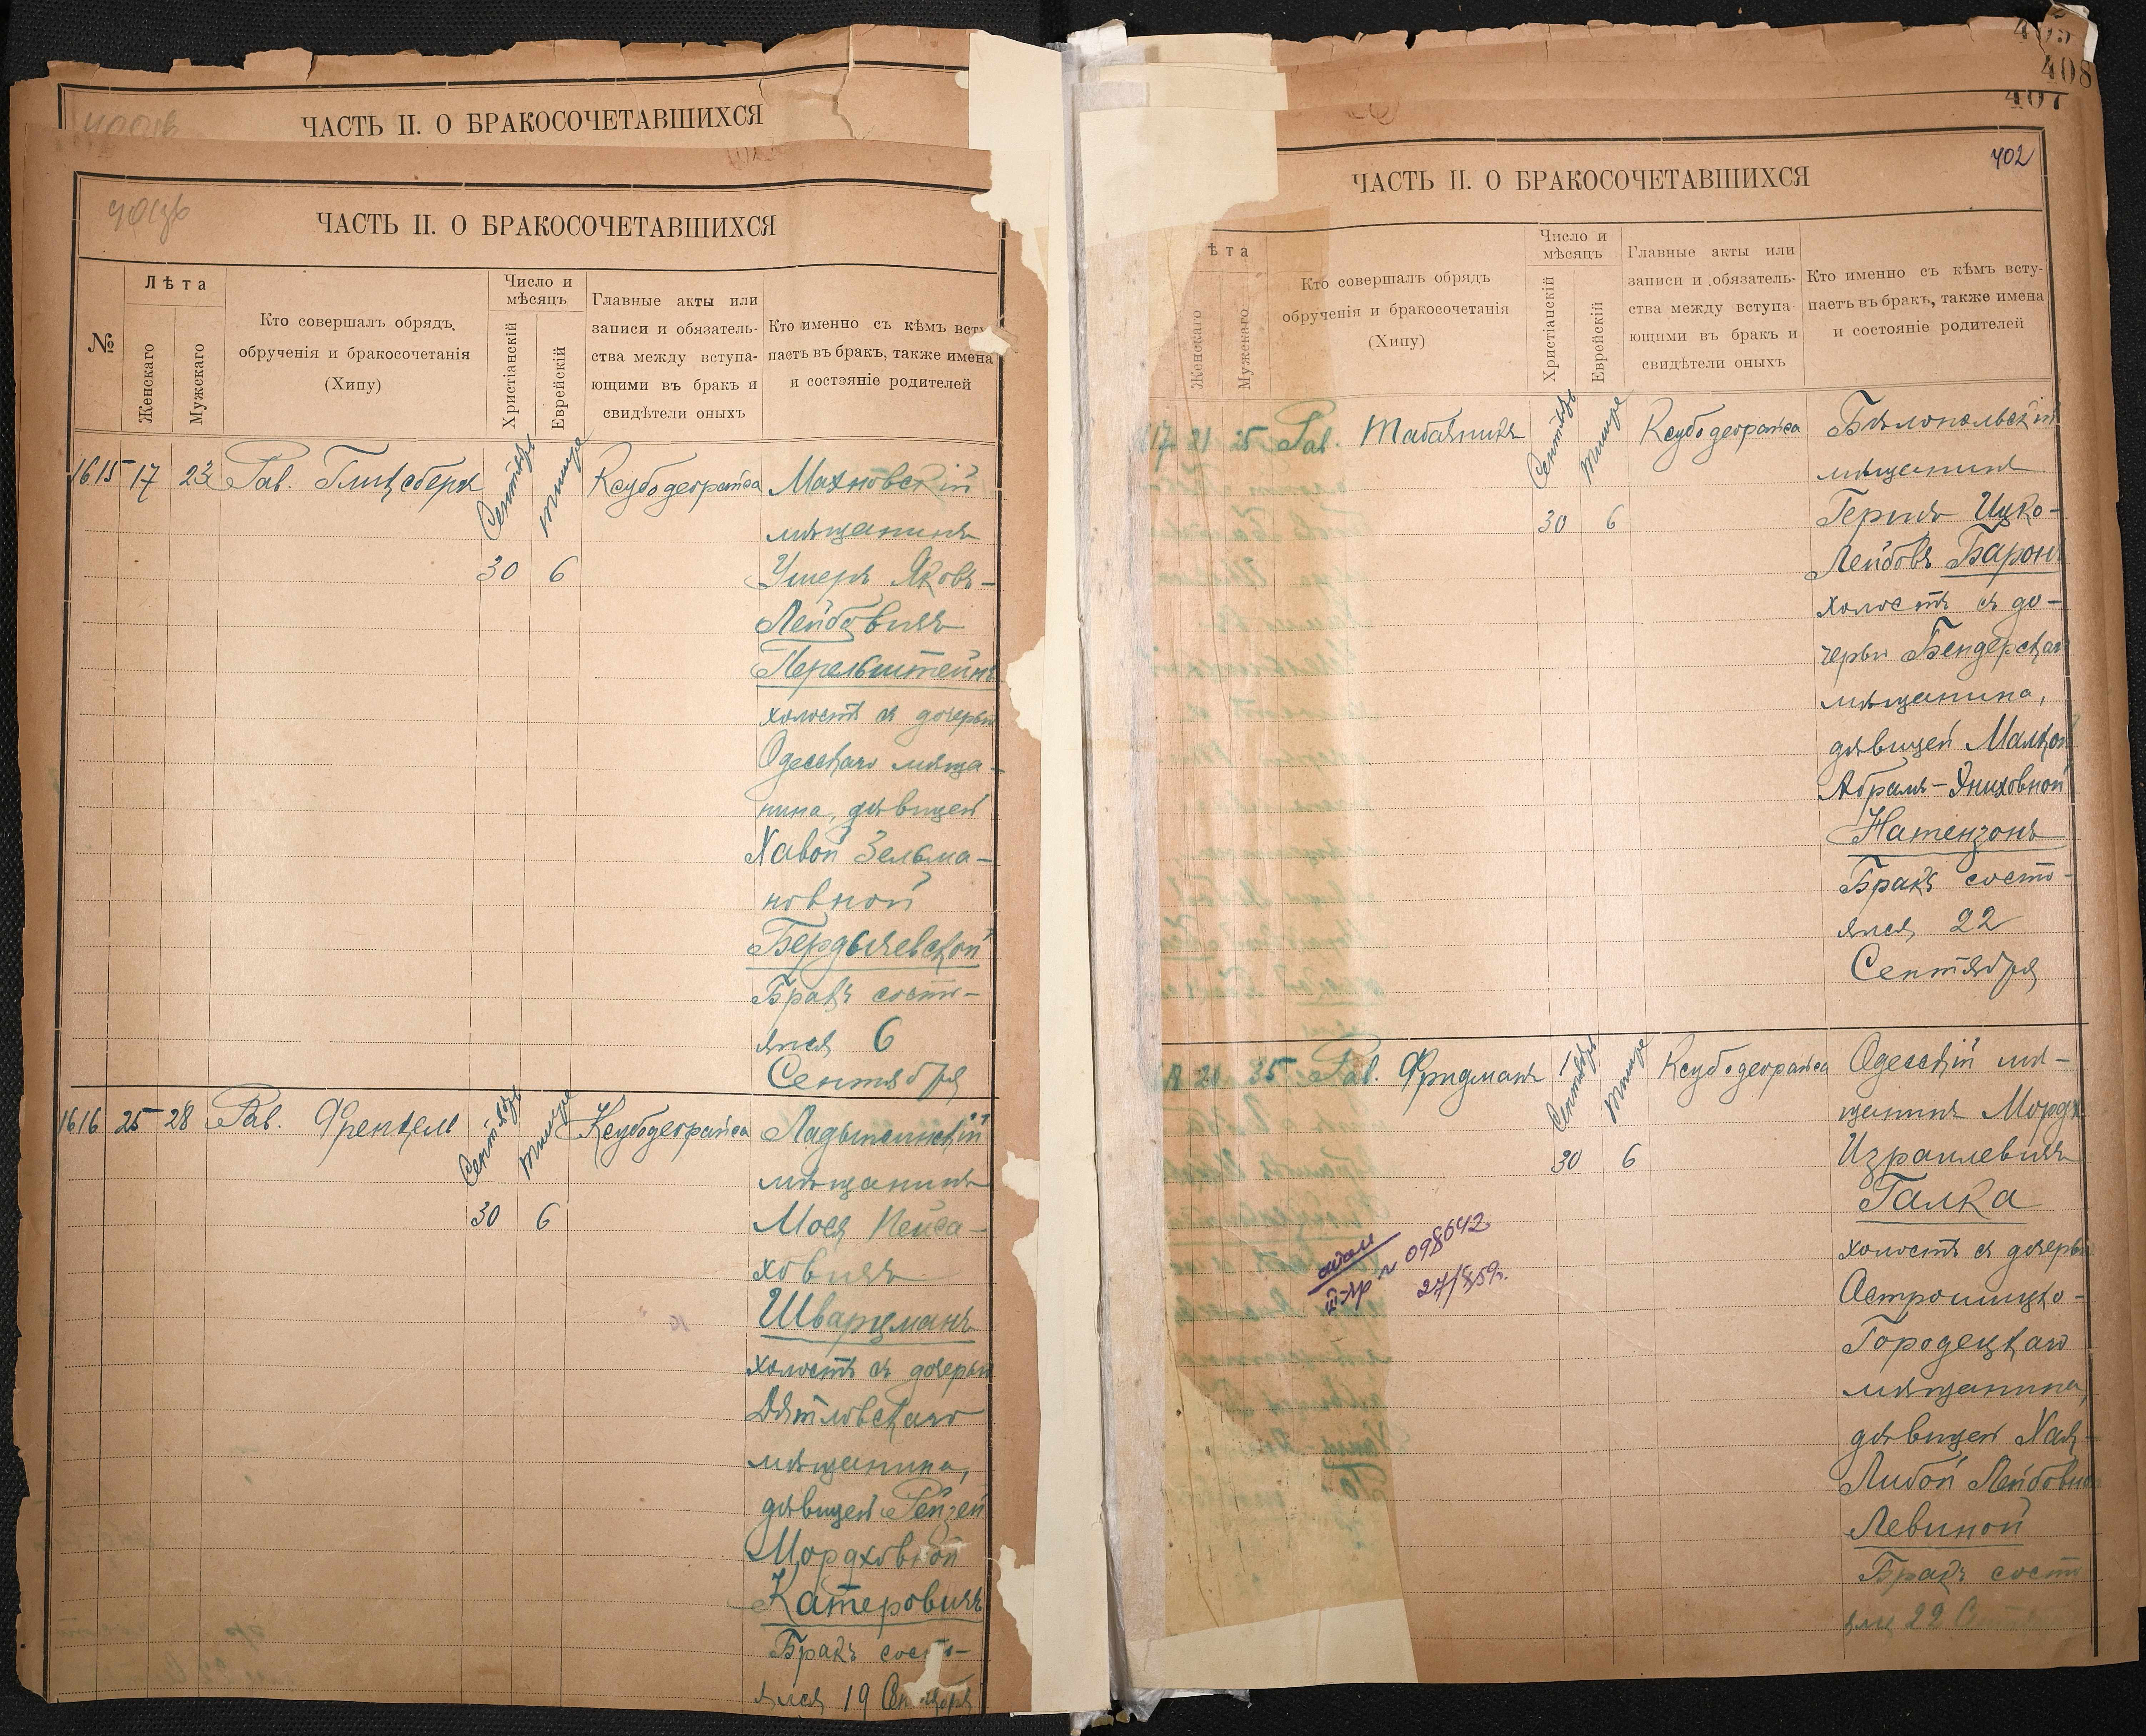 ЧАСТЬ II. О БРАКОСОЧЕТАВШИХСЯ
ЧАСТЬ II. О БРАКОСОЧЕТАВШИХСЯ
№
Лѣта
Женскаго
Мужскаго
Кто совершалъ обрядъ
обрученія и бракосочетанія
(Хипу)
Число и
мѣсяцъ
Христіанскій
Еврейскій
Главные акты или
записи и обязатель-
ства между вступа-
ющими въ бракъ и
свидѣтели оныхъ
Кто именно съ кѣмъ всту
паетъ въ бракъ, также имена
и состэяніе родителей
1615 17 23 Рав. Гликсберг Сентябрь Тишре Ксубодеорайса Махновскій
мѣщанинъ
30 6 Ушеръ Яковъ-
Лейбовичъ
Перельштейнъ
холостъ съ дочерью
Одесскаго мѣща-
нина, дѣвицей
Хавой Зельма-
новной
Бердычевской
Бракъ состо-
ялся 6
Сентября
1616 25 28 Рав. Френкель Сентябрь Тишре Ксубодеорайса Ладыжинскій
мѣщанинъ
30 6 Мося Пейса-
ховичъ
Шварцманъ
холостъ съ дочерью
Дятловскаго
мѣщанина,
дѣвицей Рейзей
Мордховной
Катеровичъ
Бракъ состо-
ялся 19 Сентября
405
408
407
402
ЧАСТЬ II. О БРАКОСОЧЕТАВШИХСЯ
ѣта
Женскаго
Мужскаго
Кто совершалъ обрядъ
обрученія и бракосочетанія
(Хипу)
Число и
мѣсяцъ
Христіанскій
Еврейскій
Главные акты или
записи и обязатель-
ства между вступа-
ющими въ бракъ и
свидѣтели оныхъ
Кто именно съ кѣмъ всту-
паетъ въ бракъ, также имена
и состояніе родителей
17 21 25 Рав. Табачникъ Сентябрь Тишре Ксубодеорайса Бѣлопольскій
мѣщанинъ
30 6 Гершъ Ицко-
Лейбовъ Баронъ
холостъ съ до-
черью Бендерскаго
мѣщанина,
дѣвицей Малкой
Абрамъ-Эниховной
Натензонъ
Бракъ состо-
ялся 22
Сентября
18 21 35 Рав. Фридманъ Сентябрь Тишре Ксубодеорайса Одесскій мѣ-
щанинъ Мордх
30 6 Израилевичъ
Галка
холостъ съ дочерью
Острошицко-
Городецкаго
мѣщанина,
дѣвицей Хая-
Либой Лейбовной
Левиной
Бракъ состо
ялся 22 Сентября
№ 098642